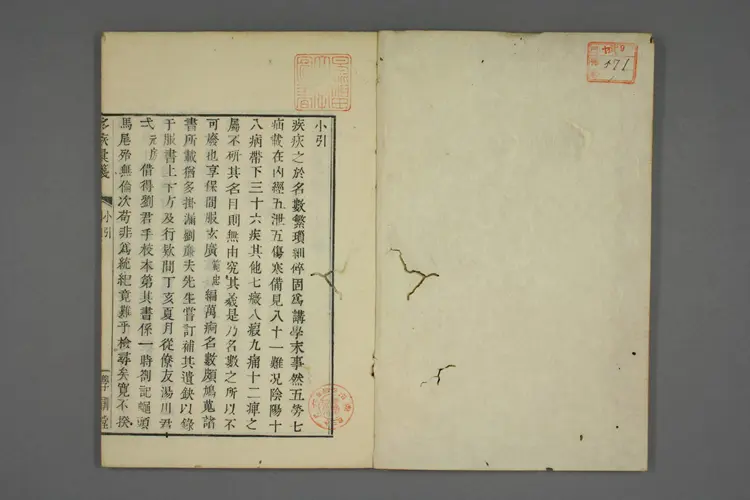 小引
疾疢之於名數繁瑣細碎固爲講學末事然五勞七
病載在內經五泄五傷寒備見八十一難况陰陽十
八病帶下三十六疾其他七癥八瘕九痛十二痺之
屬不研其名目則無由究其義是乃名數之所以不
可廢也享保間服玄廣編萬病名數頗鳩蒐諸
書所載猶多掛漏劉廉夫先生嘗訂補其遺鈌以錄
于服書上下方及行欵間丁亥夏月從僚友湯川君
借得劉君手校本第其書係一時劄記蠅頭
馬尾殆無倫次苟非爲統紀竟難乎檢尋矣寬不揆
小引
471